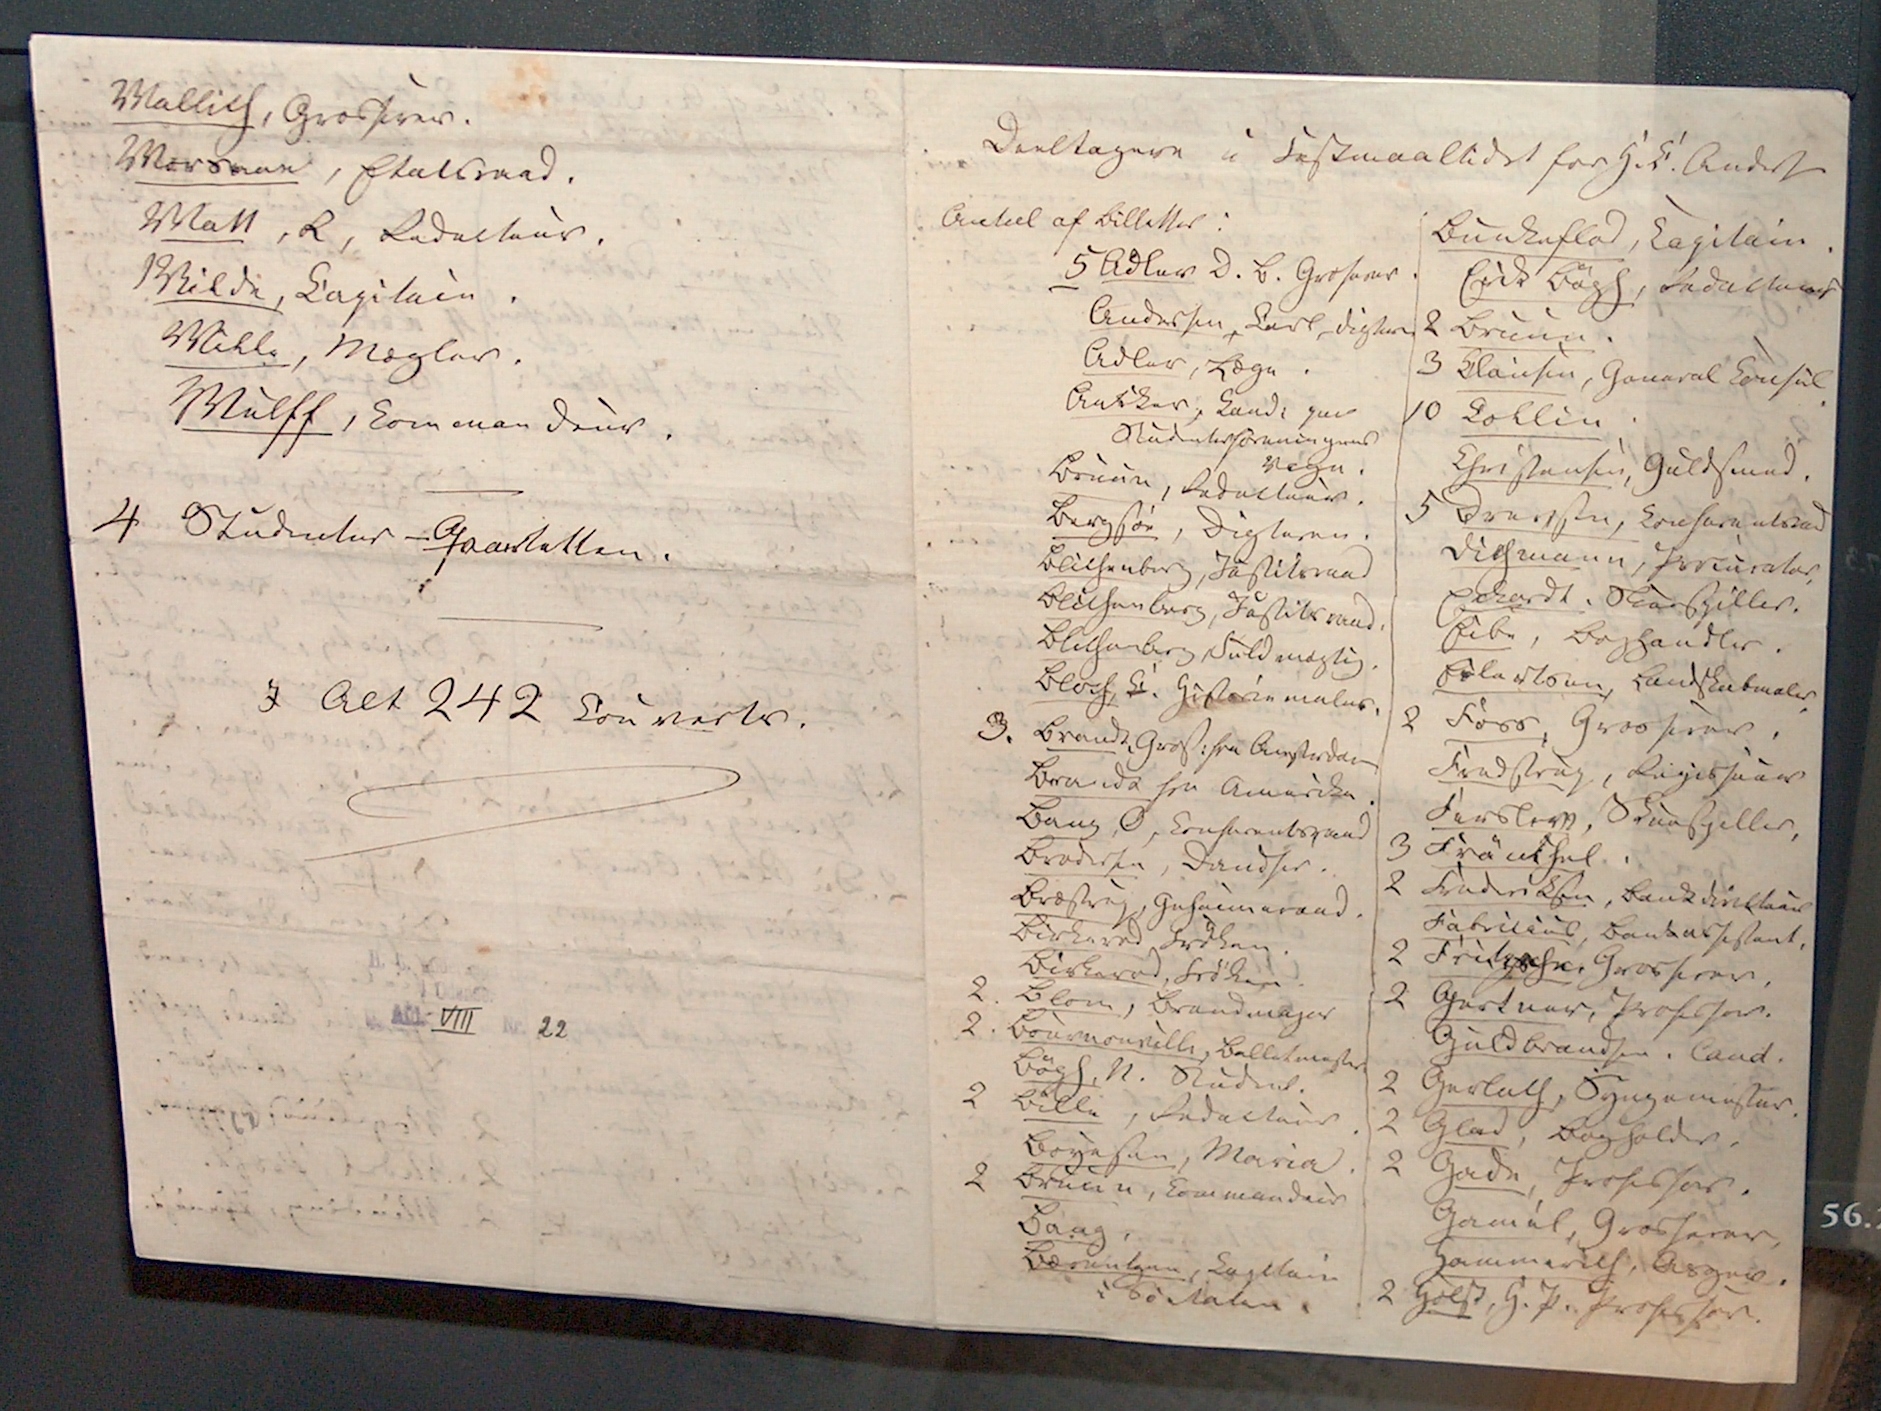 Wallich, Grosserer.
Worsaae, Etatsraad.
Watt, R, Redacteur.
Wilde, Capitain.
Wille, Mægler.
Wulff, Commandeur.
4 Studenter-Qvartetten.
I Alt 242 Couverts.
VIII 22
Deeltagere i Festmaaltidet for H. C. Anders
Antal af Billetter:
5 Adler D. B. Grosserer.
Andersen, Carl, Digteren
Adler, Læge.
Cand:
Studenterforeningens
Vegne.
Bruun, Redacteur.
Bergsøe, Digteren.
Blichenberg, Justitsraad
Blichenberg, Justitsraad.
Blichenberg, Fuldmægtig.
Bloch, C. Historiemaler.
3. Brandt, Gross: fra Amsterdam
Brandt fra Amerika.
Bang, O, Conferentsraad
Brodersen, Dandser.
Bræstrup, Geheimeraad.
Birkerød, Frøken.
Birkerød, Frøken.
2. Blom, Brandmajor
2. Bournonville, Balletmester
Bøgh, N. Student.
2 Bille, Redacteur.
Boyesen, Maria.
2 Bruun, Commandeur
Bang.
Bærentzen, Capitain
i Søetaten.
Bunkeflod, Capitain.
Erik Bøgh, Redacteur
2 Bruun.
3 Clausen, General Consul.
10 Collin.
Christensen, Guldsmed.
5 Drewsen, Conferentsraad
Dithmann, Procurator,
Eckardt, Skuespiller.
Eibe, Boghandler.
Eilertsen, Landskabmaler,
2 Foss, Grosserer.
Fredstrup, Regisseur
Ferslew, Skuespiller,
3 Fränckel.
2 Frederiksen, Bankdirecteur
Fabricius, Bankassistent.
2 Fritzsche, Grosserer,
2 Gertner, Professor.
Guldbrandsen, Cand.
2 Gerlach, Syngemester.
2 Glad, Bogholder.
2 Gade, Professor.
Gamél, Grosserer,
Hammerich, Asger.
2 Holst, H. P. Professor.
56.